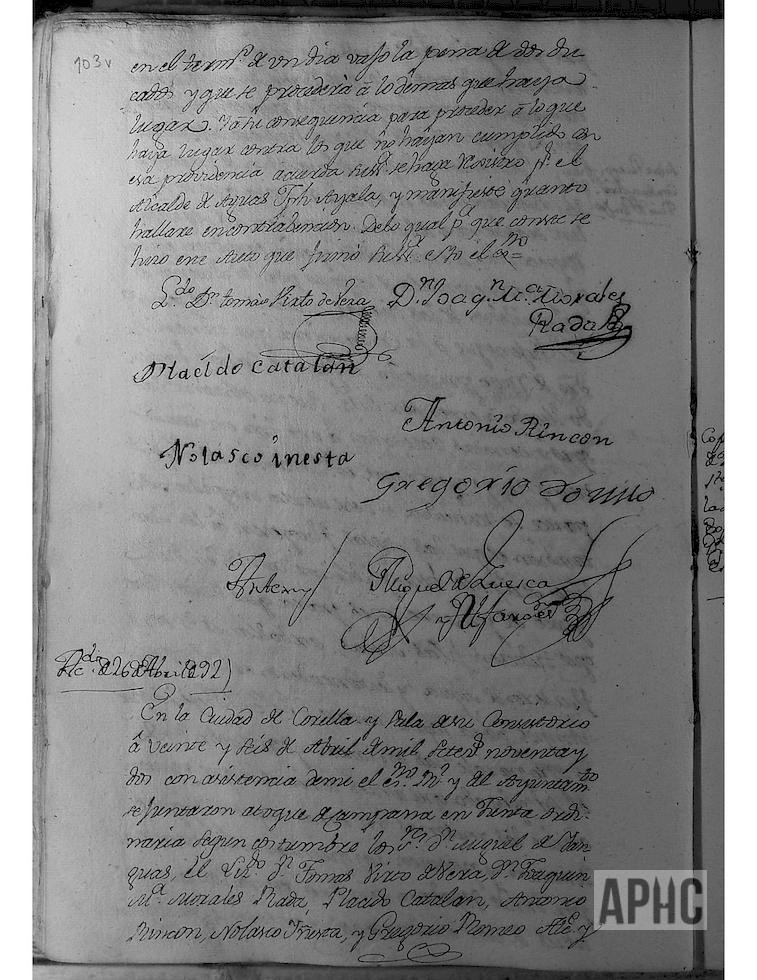 103v
en el term.º de un dia vajo la pena de dos du
cados y que se procederà à lo demas que haya
lugar. Ya su consequencia para proceder à lo que
haya lugar contra los que no hayan cumplido con
esa providencia acuerda se haga Rexistro p.r el
Alcalde de Aguas Jph Ayala, y manifieste quanto
hallare en contradencion. Delo qual p.a que conste se
hizo este Auto que firmò esto el ss.no
L.do D.n tomas Virto de Vera D.n Joaq.n M.a Morales
Rada
Placído Catalan
Antonio Rincon
Nolasco inesta
Gregorio
Ante my Miguel de Luesca
Re.do de 26 de Abril de 92
En la Ciudad de Corella y Sala de su Consistorio
â veinte y seis de Abril de mil setez.s noventa y
dos con asistencia de mi el es.no R.l y del Ayuntam.to
se juntaron a toque de Campana en Junta ordi-
naria segun costumbre los S.res D.n Miguel de
guas, el Lic.do D.n Tomas Virto de Vera, D.n Joaquin
M.a Morales Rada, Placido Catalan, Antonio
Rincon, Nolasco Ynesta, y Gregorio Romeo Alc.e y
APHC